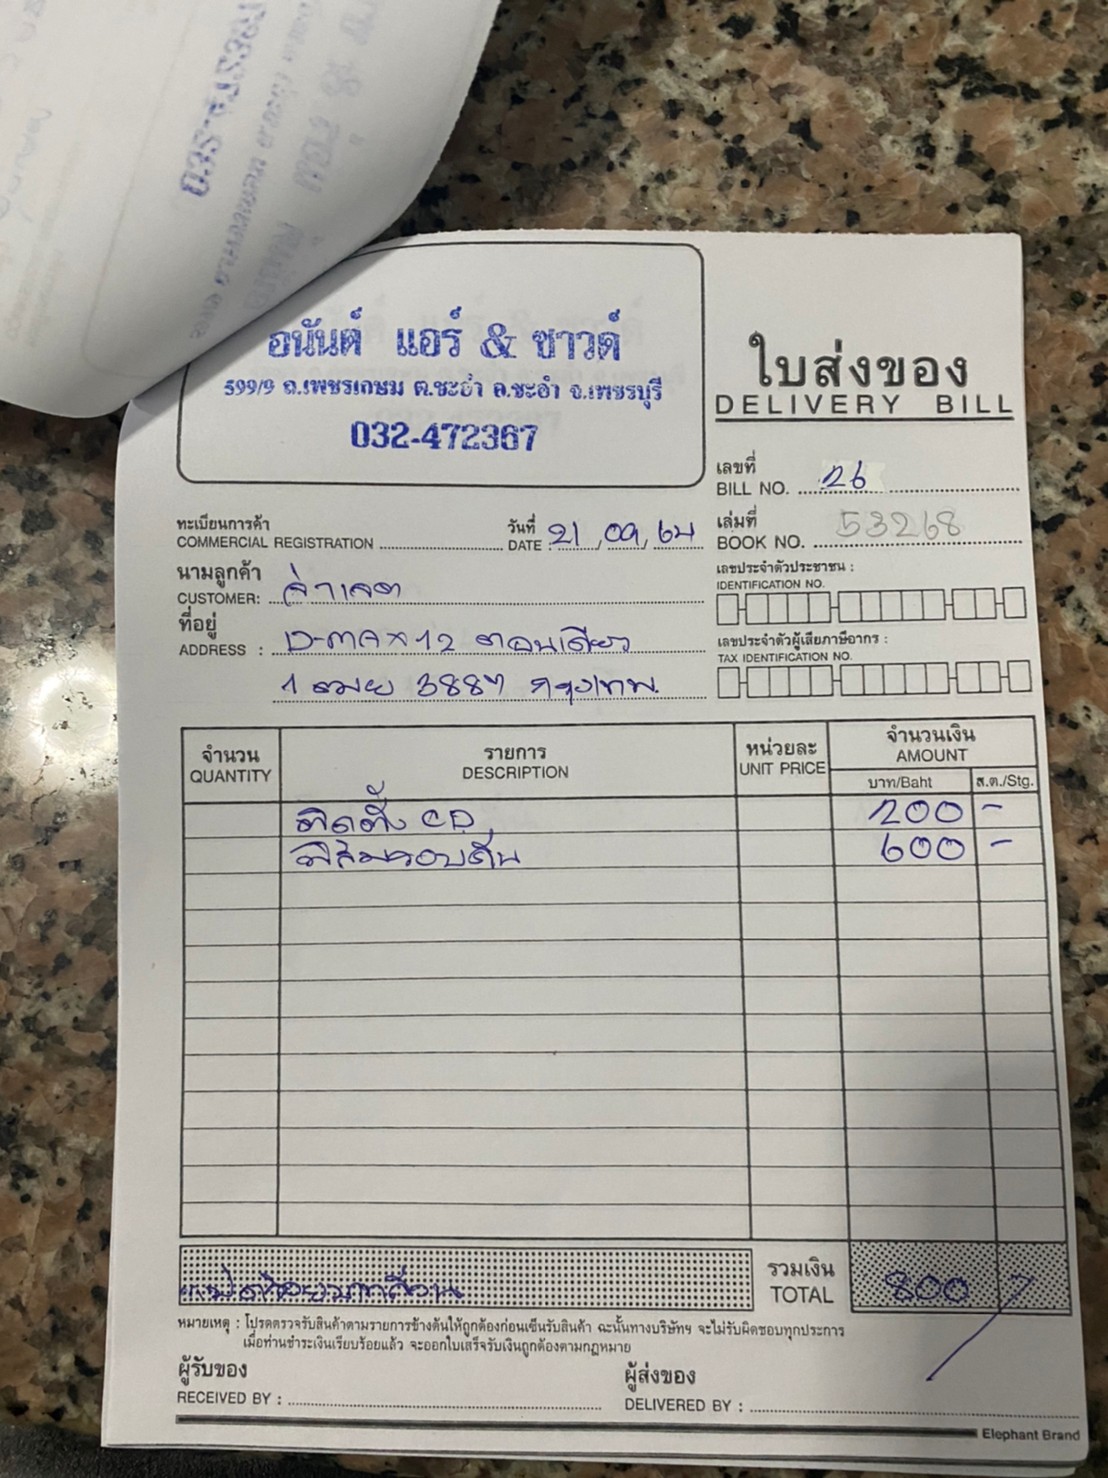 อนันต์ แอร์ & ซาวด์
599/9 ถ.เพชรเกษม ต.ชะอำ อ.ชะอำ จ.เพชรบุรี
032-472367
ใบส่งของ
DELIVERY BILL
เลขที่
BILL NO. 26
ทะเบียนการค้า
COMMERCIAL REGISTRATION
วันที่
DATE : 21, 09, 64
เล่มที่
BOOK NO. 53268
นามลูกค้า
CUSTOMER:
เลขประจำตัวประชาชน :
IDENTIFICATION NO.
ที่อยู่
ADDRESS : D-MAX 12 ตอนเดียว
เลขประจำตัวผู้เสียภาษีอากร :
TAX IDENTIFICATION NO.
3887 กรุงเทพ.
จำนวน
QUANTITY
รายการ
DESCRIPTION
หน่วยละ
UNIT PRICE
จำนวนเงิน
AMOUNT
บาท/Baht
ส.ต./Stg.
ติดตั้ง CD 200 -
ฟิล์มรอบคัน 600 -
รวมเงิน
TOTAL 800
หมายเหตุ : โปรดตรวจรับสินค้าตามรายการข้างต้นให้ถูกต้องก่อนเซ็นรับสินค้า ฉะนั้นทางบริษัทฯ จะไม่รับผิดชอบทุกประการ
เมื่อท่านชำระเงินเรียบร้อยแล้ว จะออกใบเสร็จรับเงินถูกต้องตามกฎหมาย
ผู้รับของ
RECEIVED BY :
ผู้ส่งของ
DELIVERED BY :
Elephant Brand